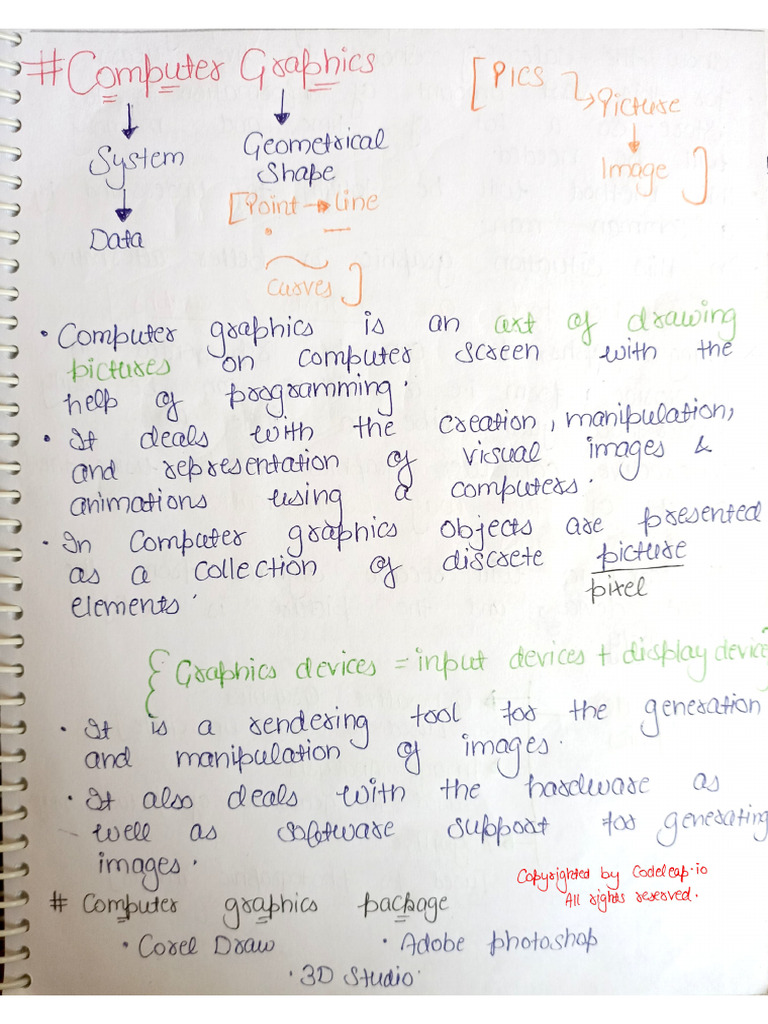 # Computer Graphics
[PICS] → Picture
System
Geometrical
Shape
Image ]
[Point → Line
Data
Curves ]
• Computer graphics is an art of drawing
pictures on computer screen with the
help of programming.
• It deals with the creation, manipulation,
and representation of visual images &
animations using a computers.
• In Computer graphics objects are presented
as a collection of discrete picture
elements. pixel
{ Graphics devices = input devices + display device }
• It is a rendering tool for the generation
and manipulation of images.
• It also deals with the hardware as
well as software support for generating
images.
Copyrighted by Codeleap.io
All rights reserved.
# Computer graphics package
• Corel Draw • Adobe photoshop
• 3D Studio.